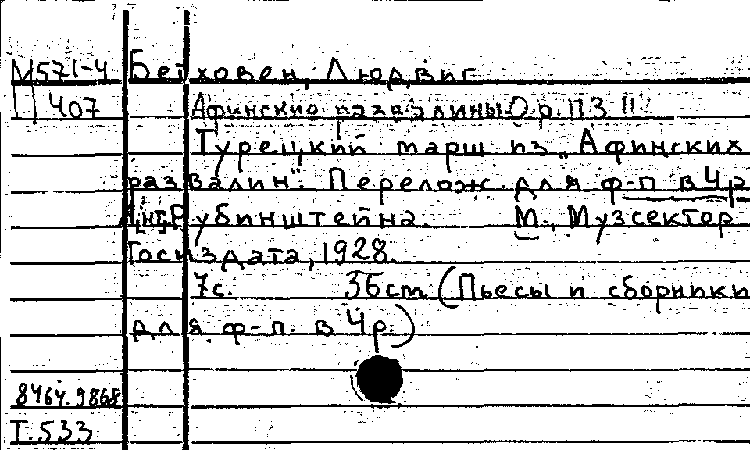 М571-4 Бетховен, Людвиг
П 407 Афинские развалины Ор. 113
Турецкий марш из „Афинских
развалин". Перелож. для ф-п в 4 р
Ант. Рубинштейна. М., Музсектор
Госиздата, 1928.
7с. 36cm (Пьесы и сборники
для ф-п. в 4 р.)
8464.9868
Т.533